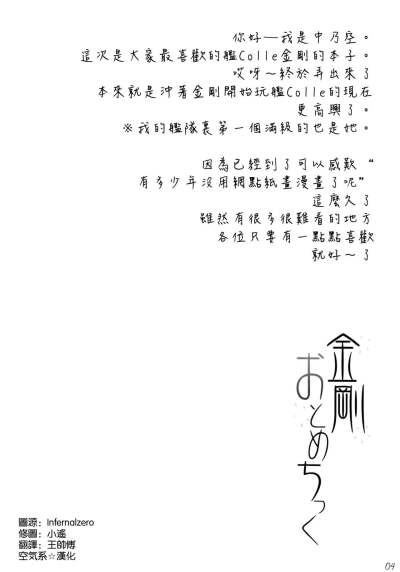 你好—我是中乃空。
這次是大家最喜歡的艦Colle金剛的本子。
哎呀～終於弄出來了
本來就是沖著金剛開始玩艦Colle的現在
更高興了。
※我的艦隊裏第一個滿級的也是她。
因為已經到了可以感歎“
有多少年沒用網點紙畫漫畫了呢”
這麼久了
雖然有很多很難看的地方
各位只要有一點點喜歡
就好～了
金剛
おとめちっく
圖源：Infernalzero
修圖：小遙
翻譯：王帥傅
空気系☆漢化
04